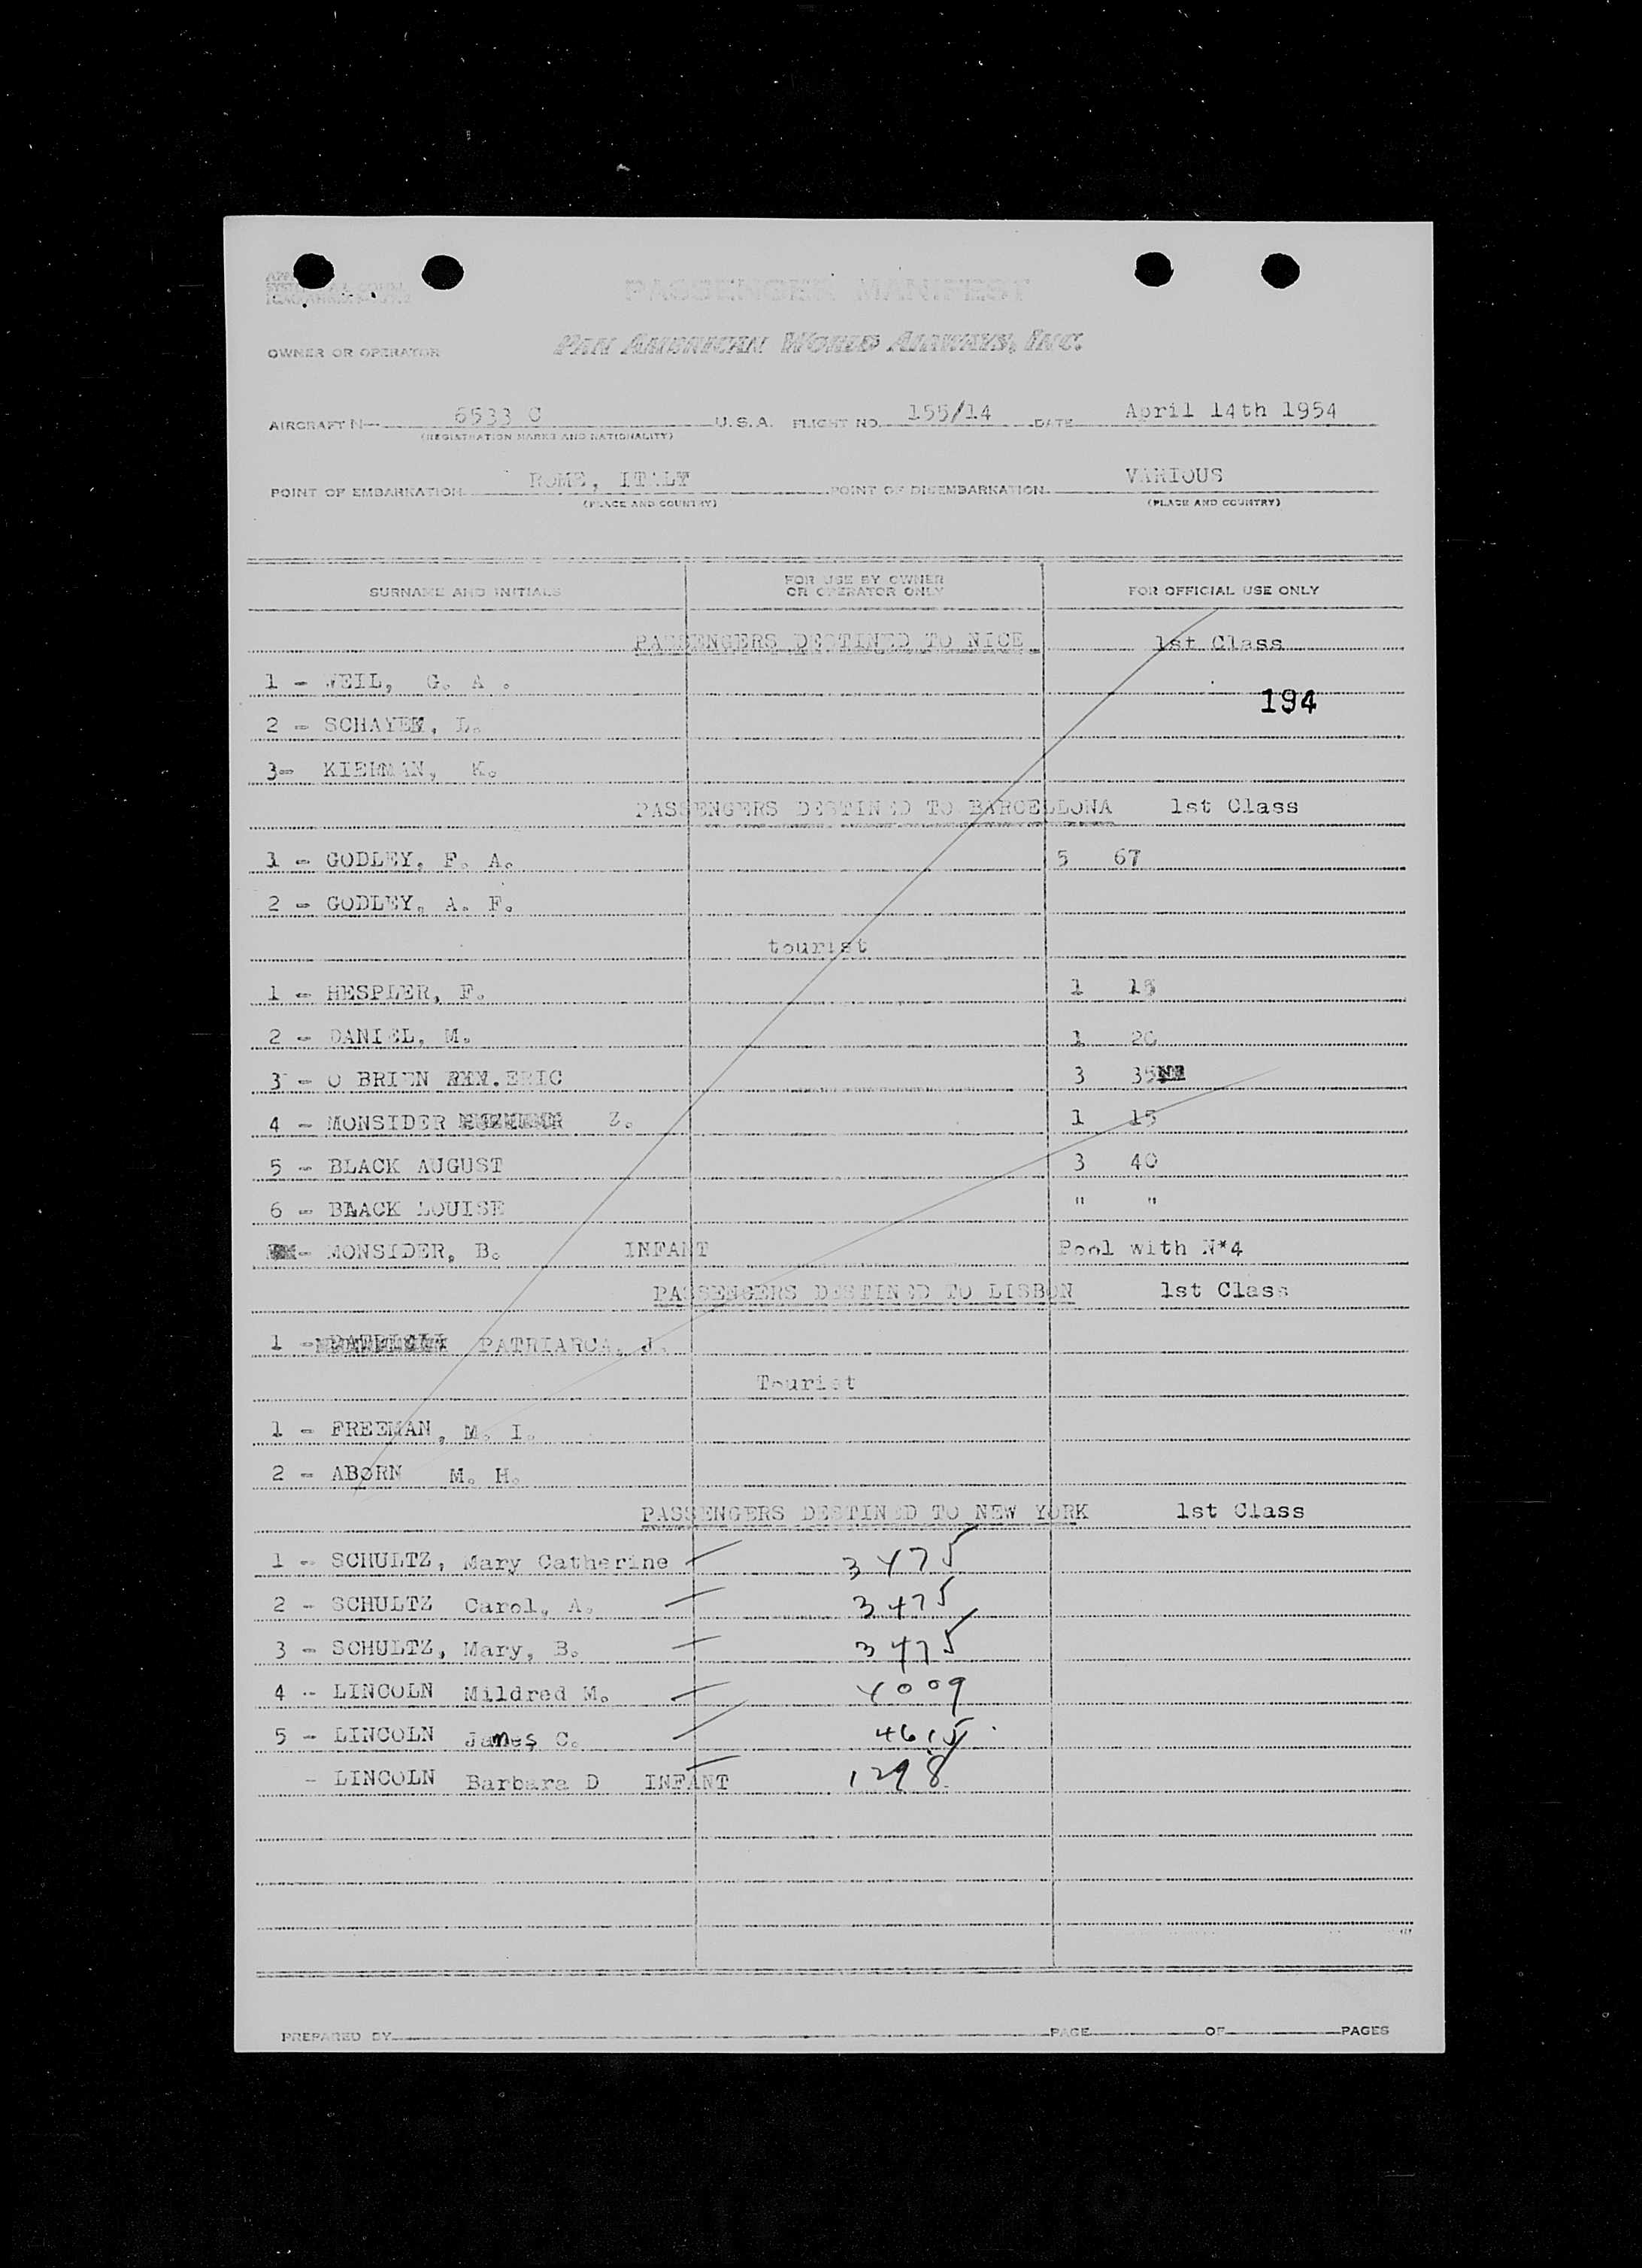 PASSENGER MANIFEST
OWNER OR OPERATOR PAN AMERICAN WORLD AIRWAYS, INC.
AIRCRAFT N- 6533 C U.S.A. FLIGHT NO. 155/14 DATE April 14th 1954
(REGISTRATION MARKS AND NATIONALITY)
POINT OF EMBARKATION ROME, ITALY POINT OF DISEMBARKATION VARIOUS
(PLACE AND COUNTRY) (PLACE AND COUNTRY)
SURNAME AND INITIALS FOR USE BY OWNER OR OPERATOR ONLY FOR OFFICIAL USE ONLY
PASSENGERS DESTINED TO NICE 1st Class
1 - WEIL, G. A .
194
2 - SCHAYEK, L.
3- KIERMAN, K.
PASSENGERS DESTINED TO BARCELLONA 1st Class
1 - GODLEY, F. A. 5 67
2 - GODLEY, A. F.
tourist
1 - HESPLER, F. 1 15
2 - DANIEL, M. 1 20
3 - O BRIEN ERIC 3 35
4 - MONSIDER Z. 1 15
5 - BLACK AUGUST 3 40
6 - BLACK LOUISE " "
- MONSIDER, B. INFANT Pool with N*4
PASSENGERS DESTINED TO LISBON 1st Class
1 - PATRIARCA, J.
Tourist
1 - FREEMAN, M. I.
2 - ABORN M. H.
PASSENGERS DESTINED TO NEW YORK 1st Class
1 - SCHULTZ, Mary Catherine 3475
2 - SCHULTZ Carol, A. 3475
3 - SCHULTZ, Mary, B. 3475
4 - LINCOLN Mildred M. 4009
5 - LINCOLN James C. 4615
- LINCOLN Barbara D INFANT 1298
PREPARED BY PAGE OF PAGES